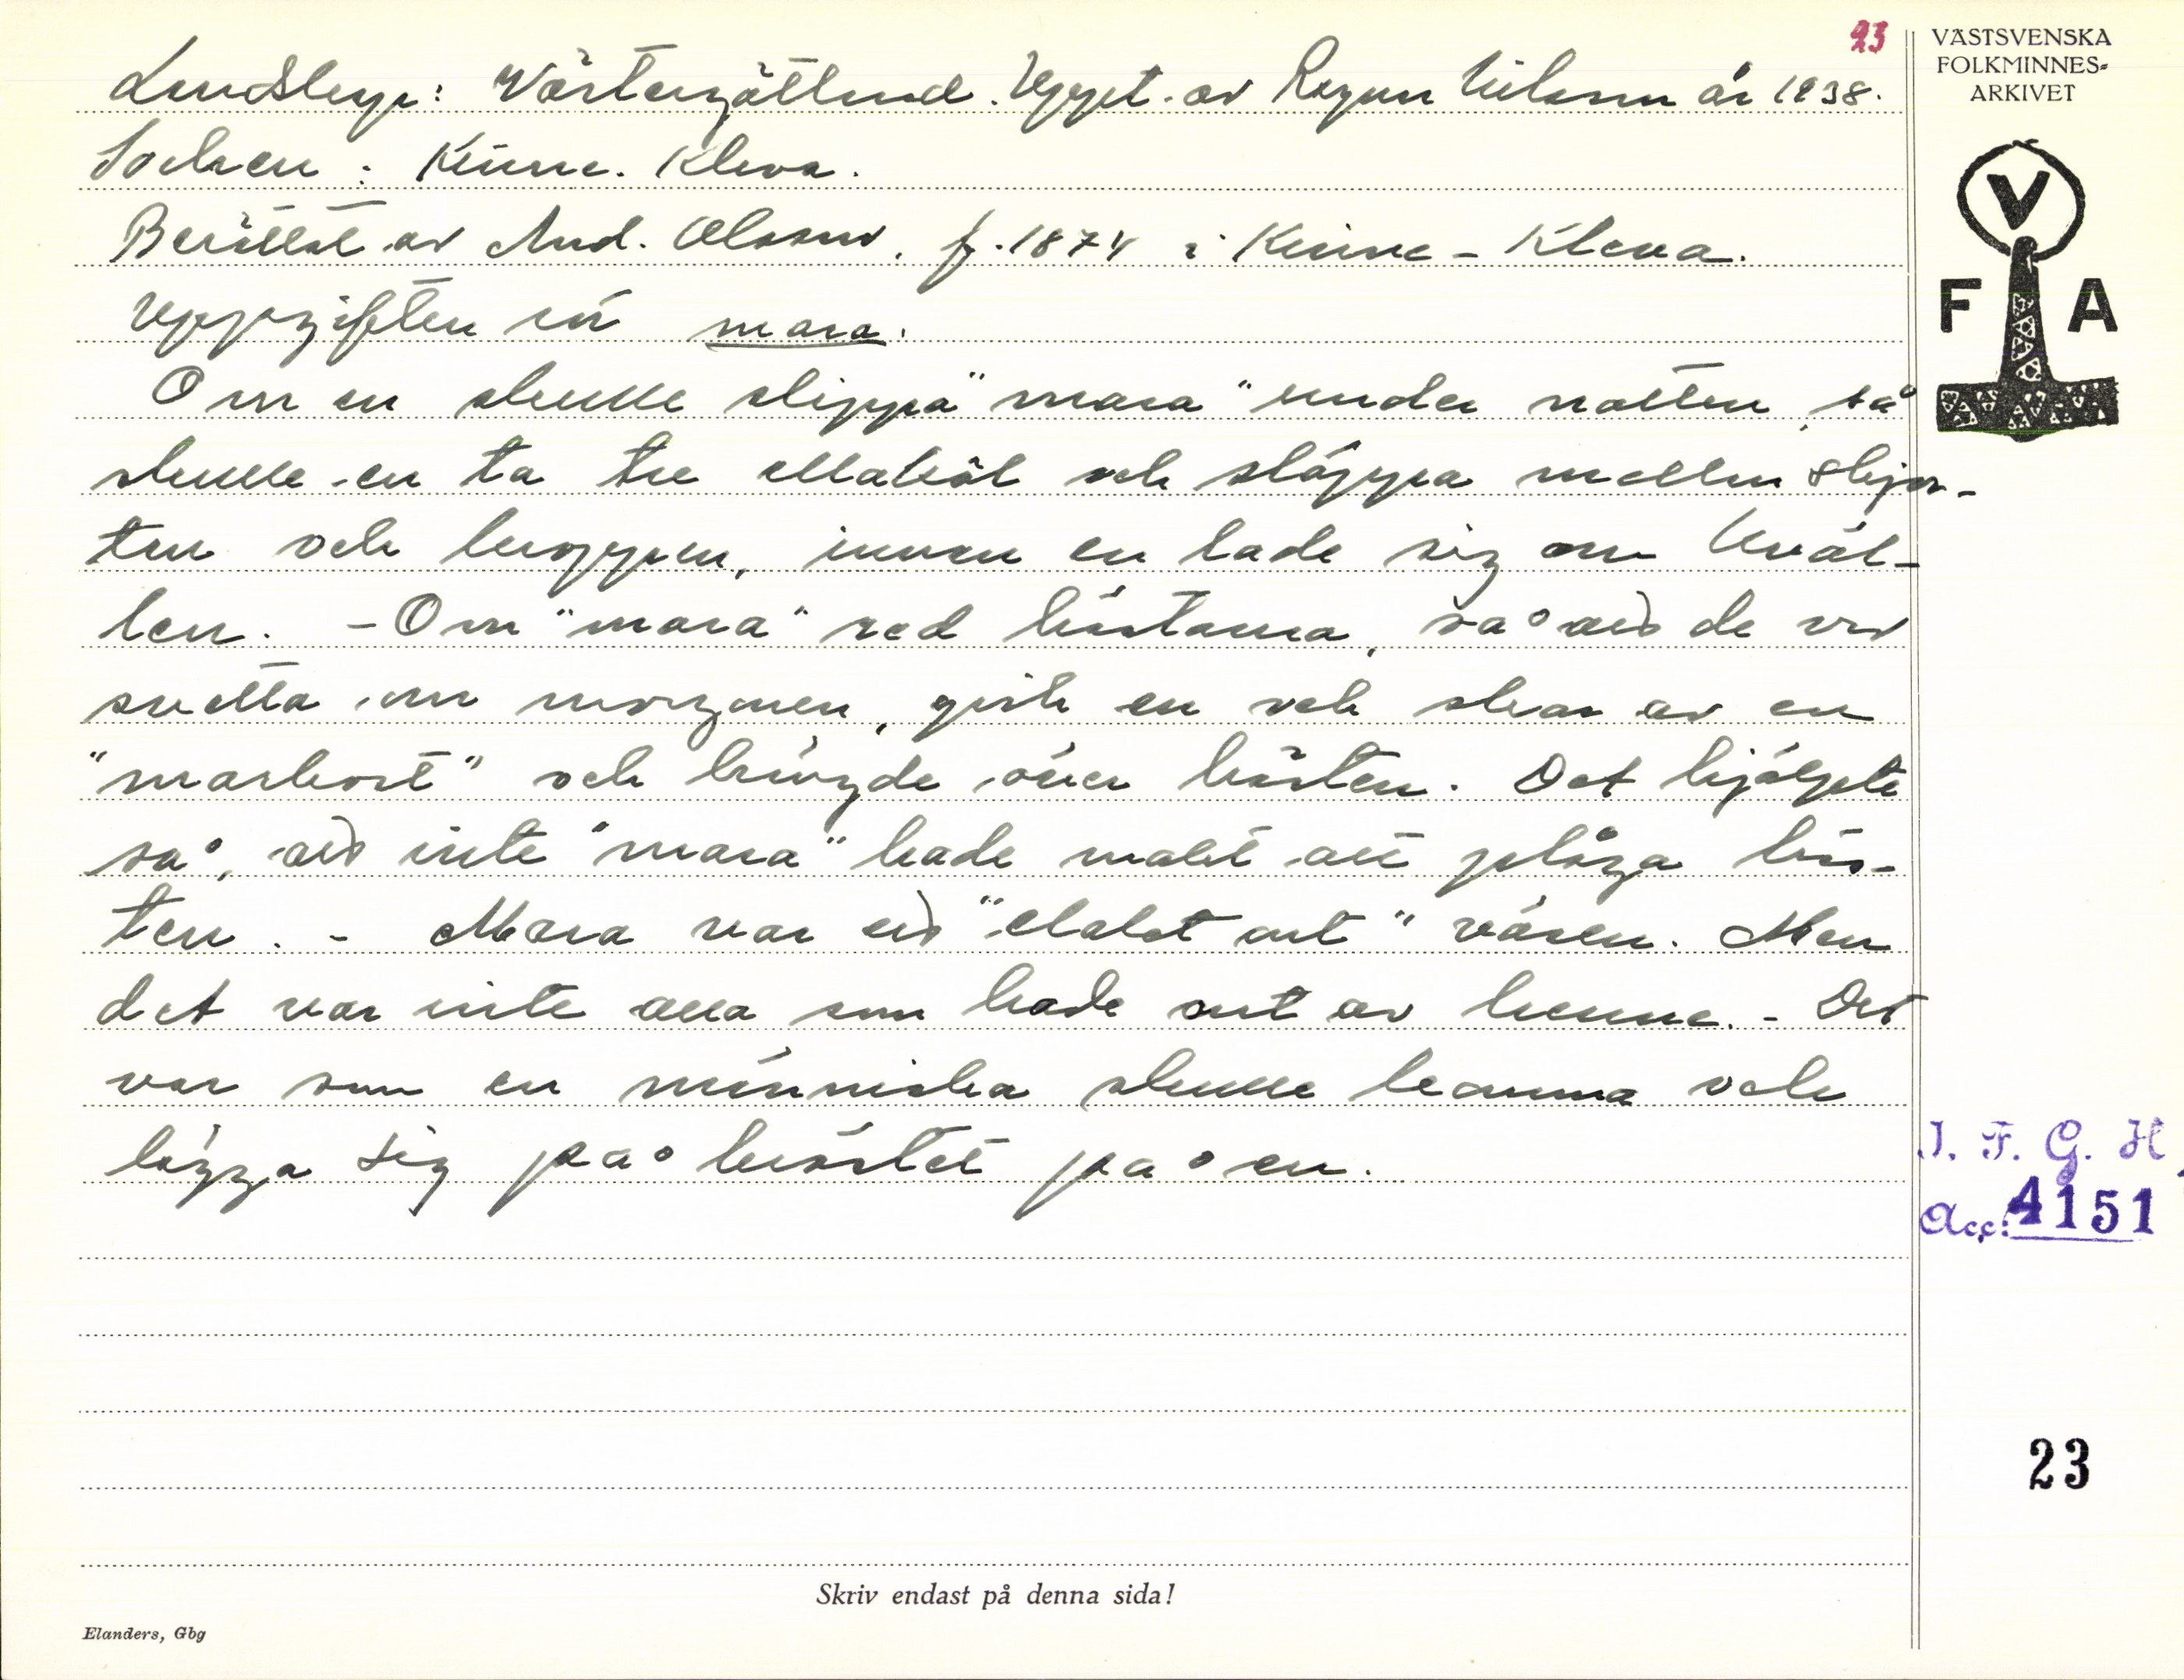 23
VÄSTSVENSKA
FOLKMINNES-
ARKIVET
Landskap: Västergötland. Uppt. av Ragnar Nilsson år 1938.
Socken: Kinne. Kleva.
Berättat av And. Olsson, f. 1874 i Kinne-Kleva.
Uppgiften rör mara.
Om en skulle slippa "mara" under natten, så
skulle en ta tre ellakôl och släppa mellan skjor-
tan och kroppen, innan en lade sig om kväl-
len. - Om "mara" red hästarna, så att de var
svetta om morgonen, gick en och skar av en
"markvast" och hängde över hästen. Det hjälpte
så, att inte "mara" hade makt att plåga häs-
ten. - Mara var ett "elakt ont" väsen. Men
det var inte alla som hade ont av henne. - Det
var som en människa skulle komma och
lägga sig på bröstet på en.
V
F A
I. F. G. H.
Acc: 4151
23
Skriv endast på denna sida!
Elanders, Gbg